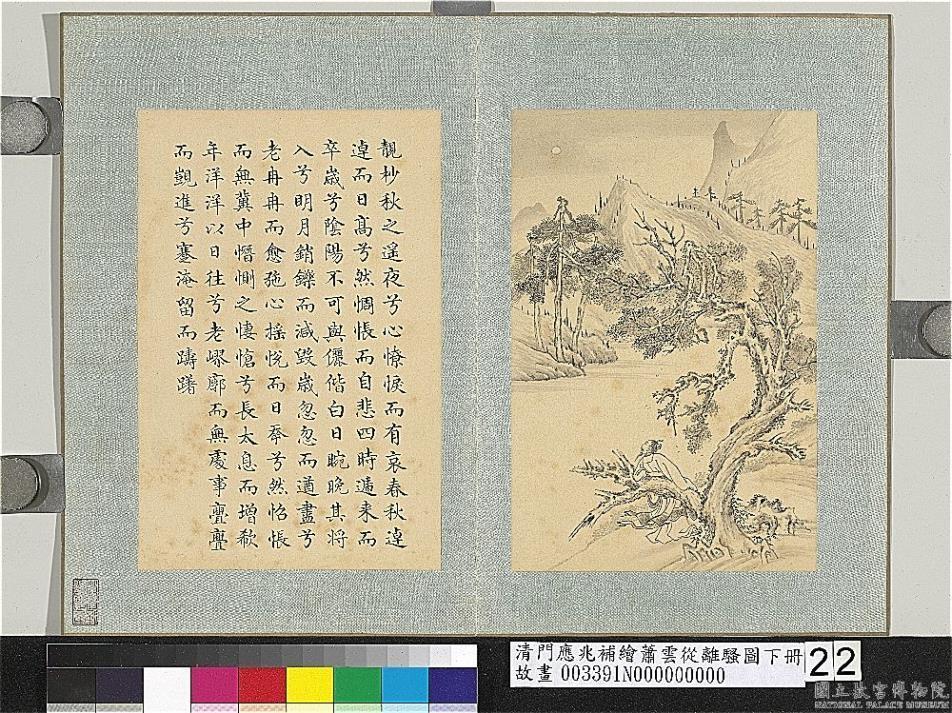 靚杪秋之遥夜兮心憭悷而有哀春秋逴
逴而日髙兮然惆悵而自悲四時遞来而
卒歳兮陰陽不可與儷偕白日晼晚其将
入兮明月銷鑠而減毀歳忽忽而遒盡兮
老冉冉而愈㢮心摇恱而日幸兮然怊悵
而無冀中憯惻之悽愴兮長太息而增欷
年洋洋以日往兮老嵺廓而無處事亹亹
而覬進兮蹇淹留而躊躇
清門應兆補繪蕭雲從離騷圖下册
故畫 003391N000000000
22
國立故宮博物院
NATIONAL PALACE MUSEUM